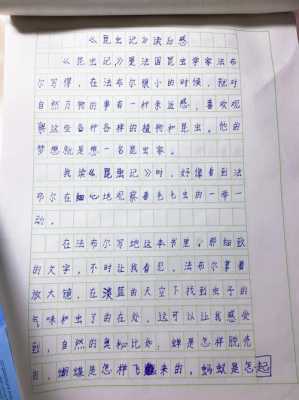 《昆虫记》读后感
《昆虫记》是法国昆虫学家法布
尔写得，在法布尔很小的时候，就对
自然万物的事有一种亲近感，喜欢观
察这些各种各样的植物和昆虫。他的
梦想就是想一名昆虫家。
我读《昆虫记》时，好像看到法
布尔在细心地观察着毛毛虫的一举一
动。
在法布尔写地这本书里，那细致
的文字，不时让我看见，法布尔拿着
放大镜，在湛蓝的天空下找到虫子的
气味和出了的在处，这可以让我感受
到，自然的奥秘比如：蝉是怎样脱壳
的，蝴蝶是怎样飞来的，蚂蚁是怎起